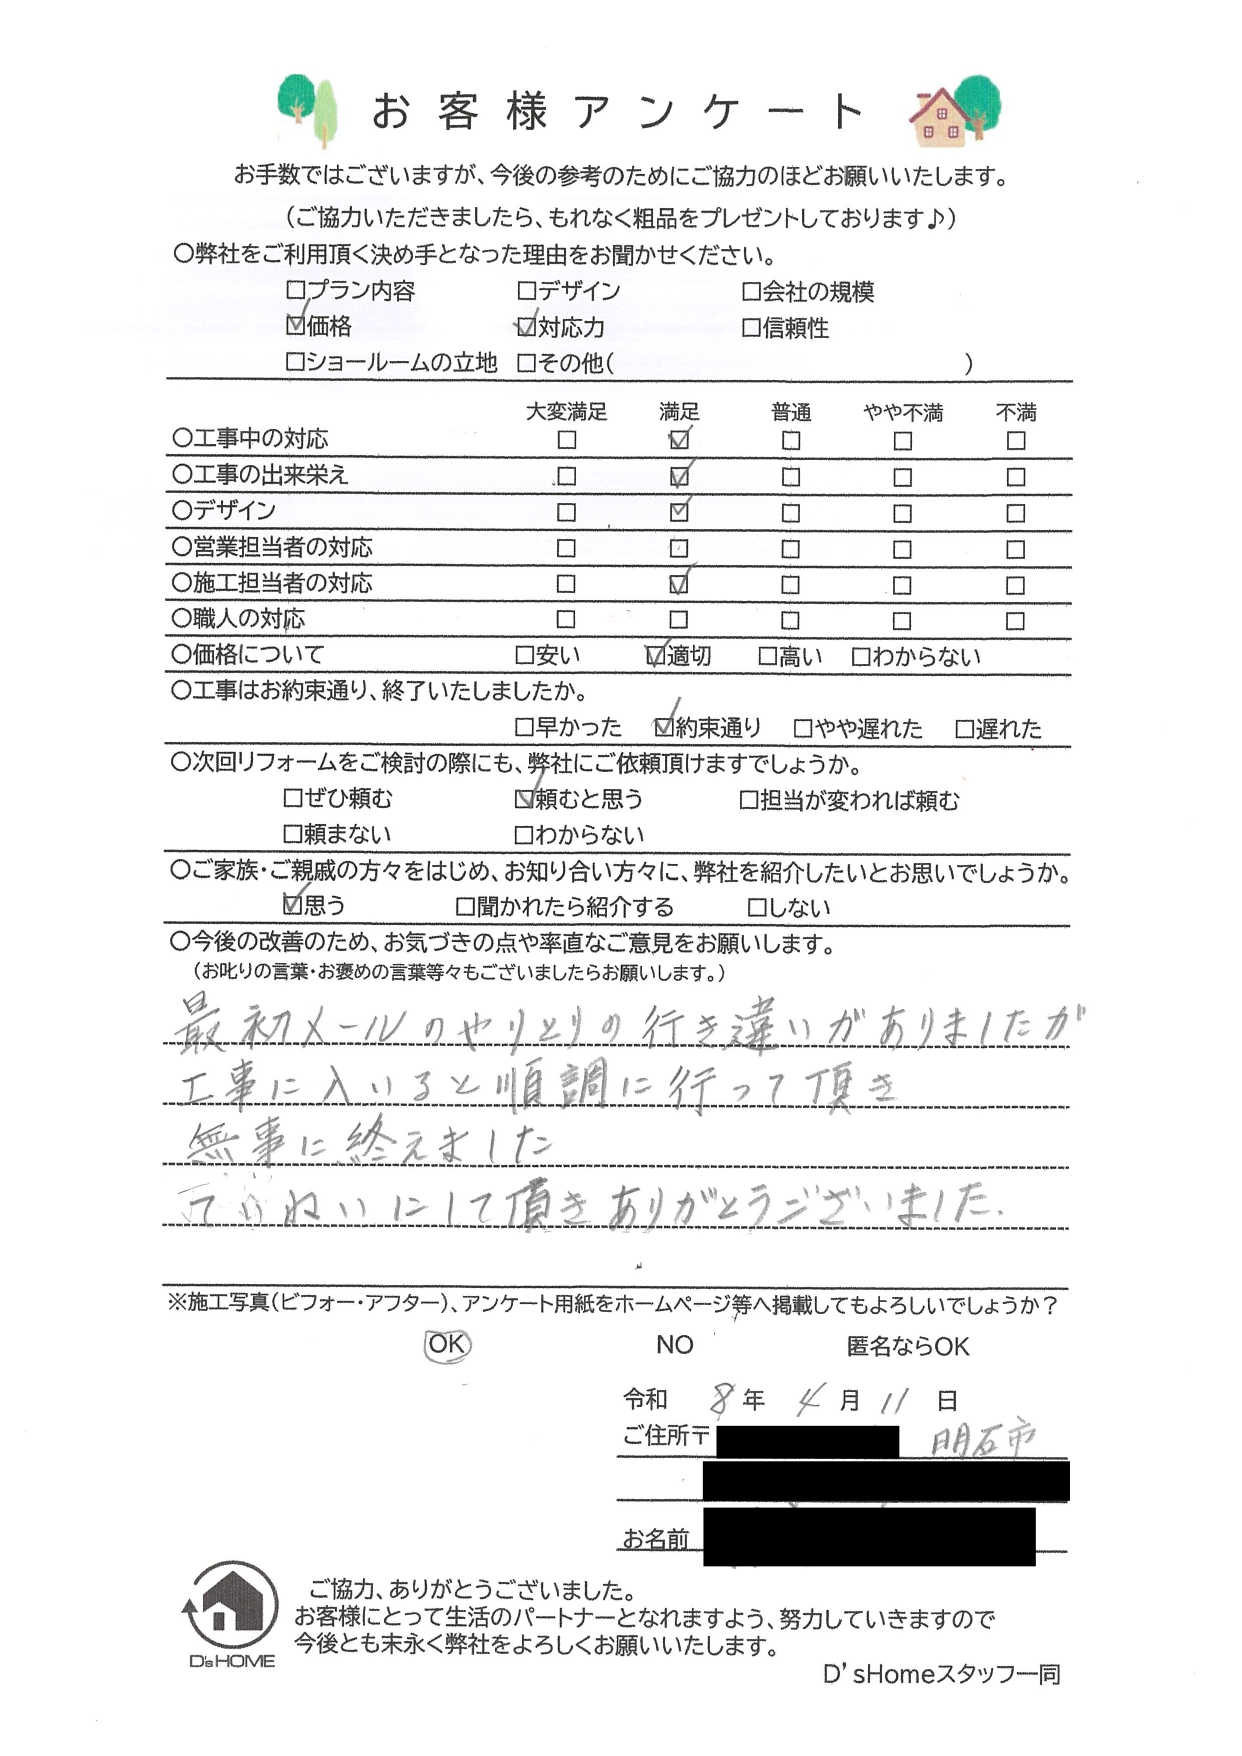 お客様アンケート
お手数ではございますが、今後の参考のためにご協力のほどお願いいたします。
（ご協力いただきましたら、もれなく粗品をプレゼントしております♪）
〇弊社をご利用頂く決め手となった理由をお聞かせください。
□プラン内容 □デザイン □会社の規模
☑価格 ☑対応力 □信頼性
□ショールームの立地 □その他( )
大変満足 満足 普通 やや不満 不満
〇工事中の対応 □ ☑ □ □ □
〇工事の出来栄え □ ☑ □ □ □
〇デザイン □ ☑ □ □ □
〇営業担当者の対応 □ □ □ □ □
〇施工担当者の対応 □ ☑ □ □ □
〇職人の対応 □ □ □ □ □
〇価格について □安い ☑適切 □高い □わからない
〇工事はお約束通り、終了いたしましたか。
□早かった ☑約束通り □やや遅れた □遅れた
〇次回リフォームをご検討の際にも、弊社にご依頼頂けますでしょうか。
□ぜひ頼む ☑頼むと思う □担当が変われば頼む
□頼まない □わからない
〇ご家族・ご親戚の方々をはじめ、お知り合い方々に、弊社を紹介したいとお思いでしょうか。
☑思う □聞かれたら紹介する □しない
〇今後の改善のため、お気づきの点や率直なご意見をお願いします。
（お叱りの言葉・お褒めの言葉等々もございましたらお願いします。）
最初メールのやりとりの行き違いがありましたが
工事に入いると順調に行って頂き
無事に終えました
ていねいにして頂きありがとうございました.
※施工写真（ビフォー・アフター）、アンケート用紙をホームページ等へ掲載してもよろしいでしょうか？
OK NO 匿名ならOK
令和 8 年 4 月 11 日
ご住所〒 明石市
お名前
ご協力、ありがとうございました。
お客様にとって生活のパートナーとなれますよう、努力していきますので
今後とも末永く弊社をよろしくお願いいたします。
D's HOME
D'sHomeスタッフ一同